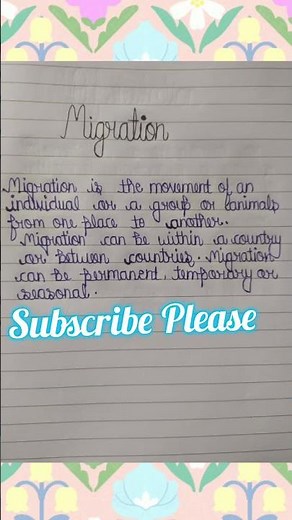 Migration
Migration is the movement of an
individual or a group or animals
from one place to another.
Migration can be within a country
or between countries. Migration
can be permanent, temporary or
seasonal.
Subscribe Please